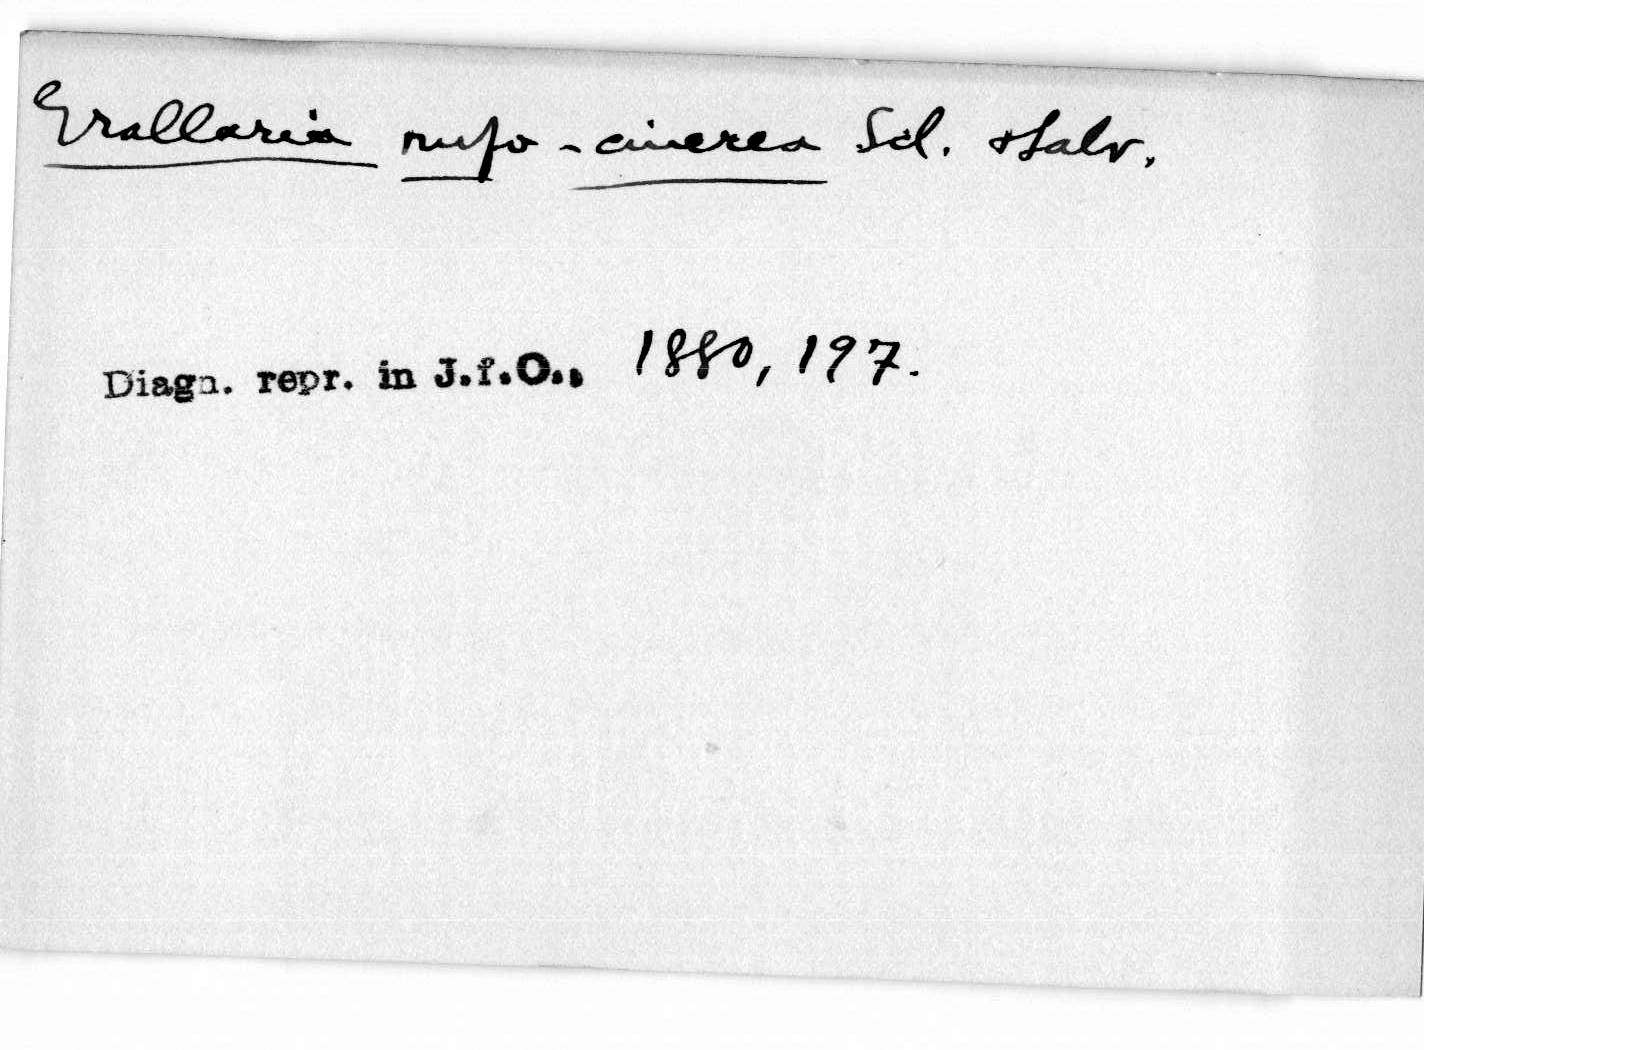 Grallaria rufo-cinerea Scl. & Salv.
Diagn. repr. in J.f.O., 1880, 197.